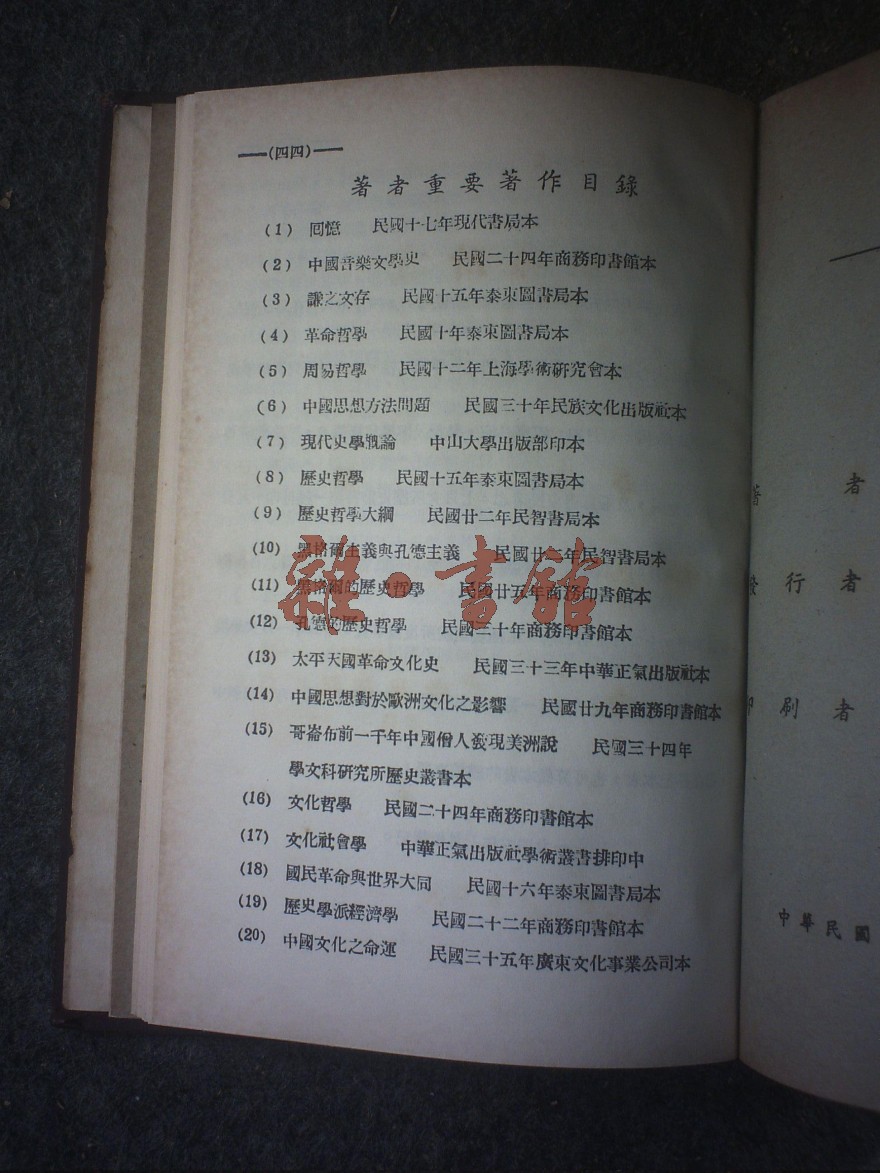 ——(四四)——
著者重要著作目錄
(1) 囘憶 民國十七年現代書局本
(2) 中國音樂文學史 民國二十四年商務印書館本
(3) 謙之文存 民國十五年泰東圖書局本
(4) 革命哲學 民國十年泰東圖書局本
(5) 周易哲學 民國十二年上海學術硏究會本
(6) 中國思想方法問題 民國三十年民族文化出版社本
(7) 現代史學槪論 中山大學出版部印本
(8) 歷史哲學 民國十五年泰東圖書局本
(9) 歷史哲學大綱 民國廿二年民智書局本
(10) 黑格爾主義與孔德主義 民國廿二年民智書局本
(11) 黑格爾的歷史哲學 民國廿五年商務印書館本
(12) 孔德的歷史哲學 民國三十年商務印書館本
(13) 太平天國革命文化史 民國三十三年中華正氣出版社本
(14) 中國思想對於歐洲文化之影響 民國廿九年商務印書館本
(15) 哥崙布前一千年中國僧人發現美洲說 民國三十四年
學文科硏究所歷史叢書本
(16) 文化哲學 民國二十四年商務印書館本
(17) 文化社會學 中華正氣出版社學術叢書排印中
(18) 國民革命與世界大同 民國十六年泰東圖書局本
(19) 歷史學派經濟學 民國二十二年商務印書館本
(20) 中國文化之命運 民國三十五年廣東文化事業公司本
雜·書館
著 者
發 行 者
印 刷 者
中華民國